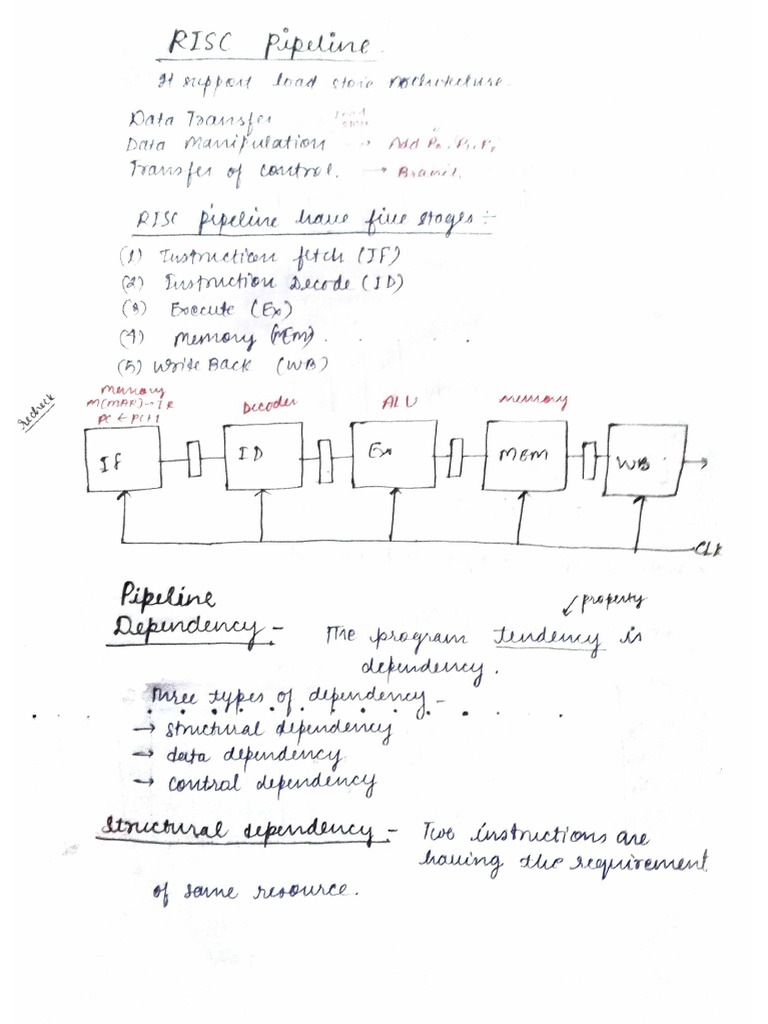 RISC Pipeline
It support load store architecture.
Data Transfer load store
Data Manipulation → Add
Transfer of control. →
RISC pipeline have five stages :-
(1) Instruction fetch (IF)
(2) Instruction Decode (ID)
(3) Execute (Ex)
(4) Memory (MEM)
(5) Write Back (WB)
recheck
Memory
M(MAR) → IR
PC ← PC+1
Decoder
ALU
Memory
IF
ID
Ex
MEM
WB
CLK
Pipeline
Dependency -
property
The program tendency is
dependency.
Three types of dependency -
→ structural dependency
→ data dependency
→ control dependency
Structural dependency - Two instructions are
having the requirement
of same resource.